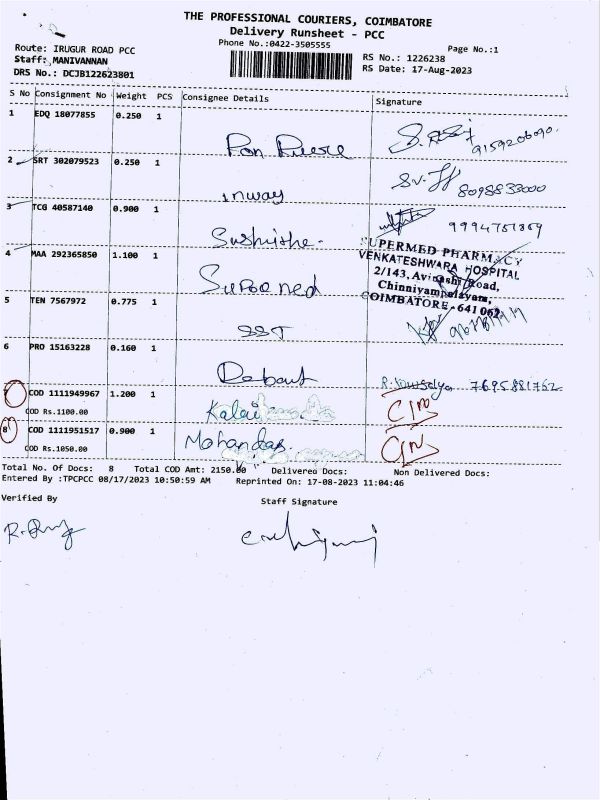 THE PROFESSIONAL COURIERS, COIMBATORE
Delivery Runsheet - PCC
Phone No.:0422-3505555
Page No.:1
Route: IRUGUR ROAD PCC
Staff: MANIVANNAN
DRS No.: DCJB122623801
RS No.: 1226238
RS Date: 17-Aug-2023
S No Consignment No Weight PCS Consignee Details Signature
1 EDQ 18077855 0.250 1
9159206090
2 SRT 302079523 0.250 1 inway
8098833000
3 TCG 40587140 0.900 1
9994751869
4 MAA 292365850 1.100 1
SUPERMED PHARMACY
VENKATESHWARA HOSPITAL
2/143, Avinashi Road,
Chinniyampalayam,
COIMBATORE-641 062
5 TEN 7567972 0.775 1 SST
6 PRO 15163228 0.160 1
7695881762
COD 1111949967 1.200 1 Kalai
COD Rs.1100.00
8 COD 1111951517 0.900 1 Mohandas
COD Rs.1050.00
Total No. Of Docs: 8 Total COD Amt: 2150.00 Delivered Docs: Non Delivered Docs:
Entered By :TPCPCC 08/17/2023 10:50:59 AM Reprinted On: 17-08-2023 11:04:46
Verified By Staff Signature